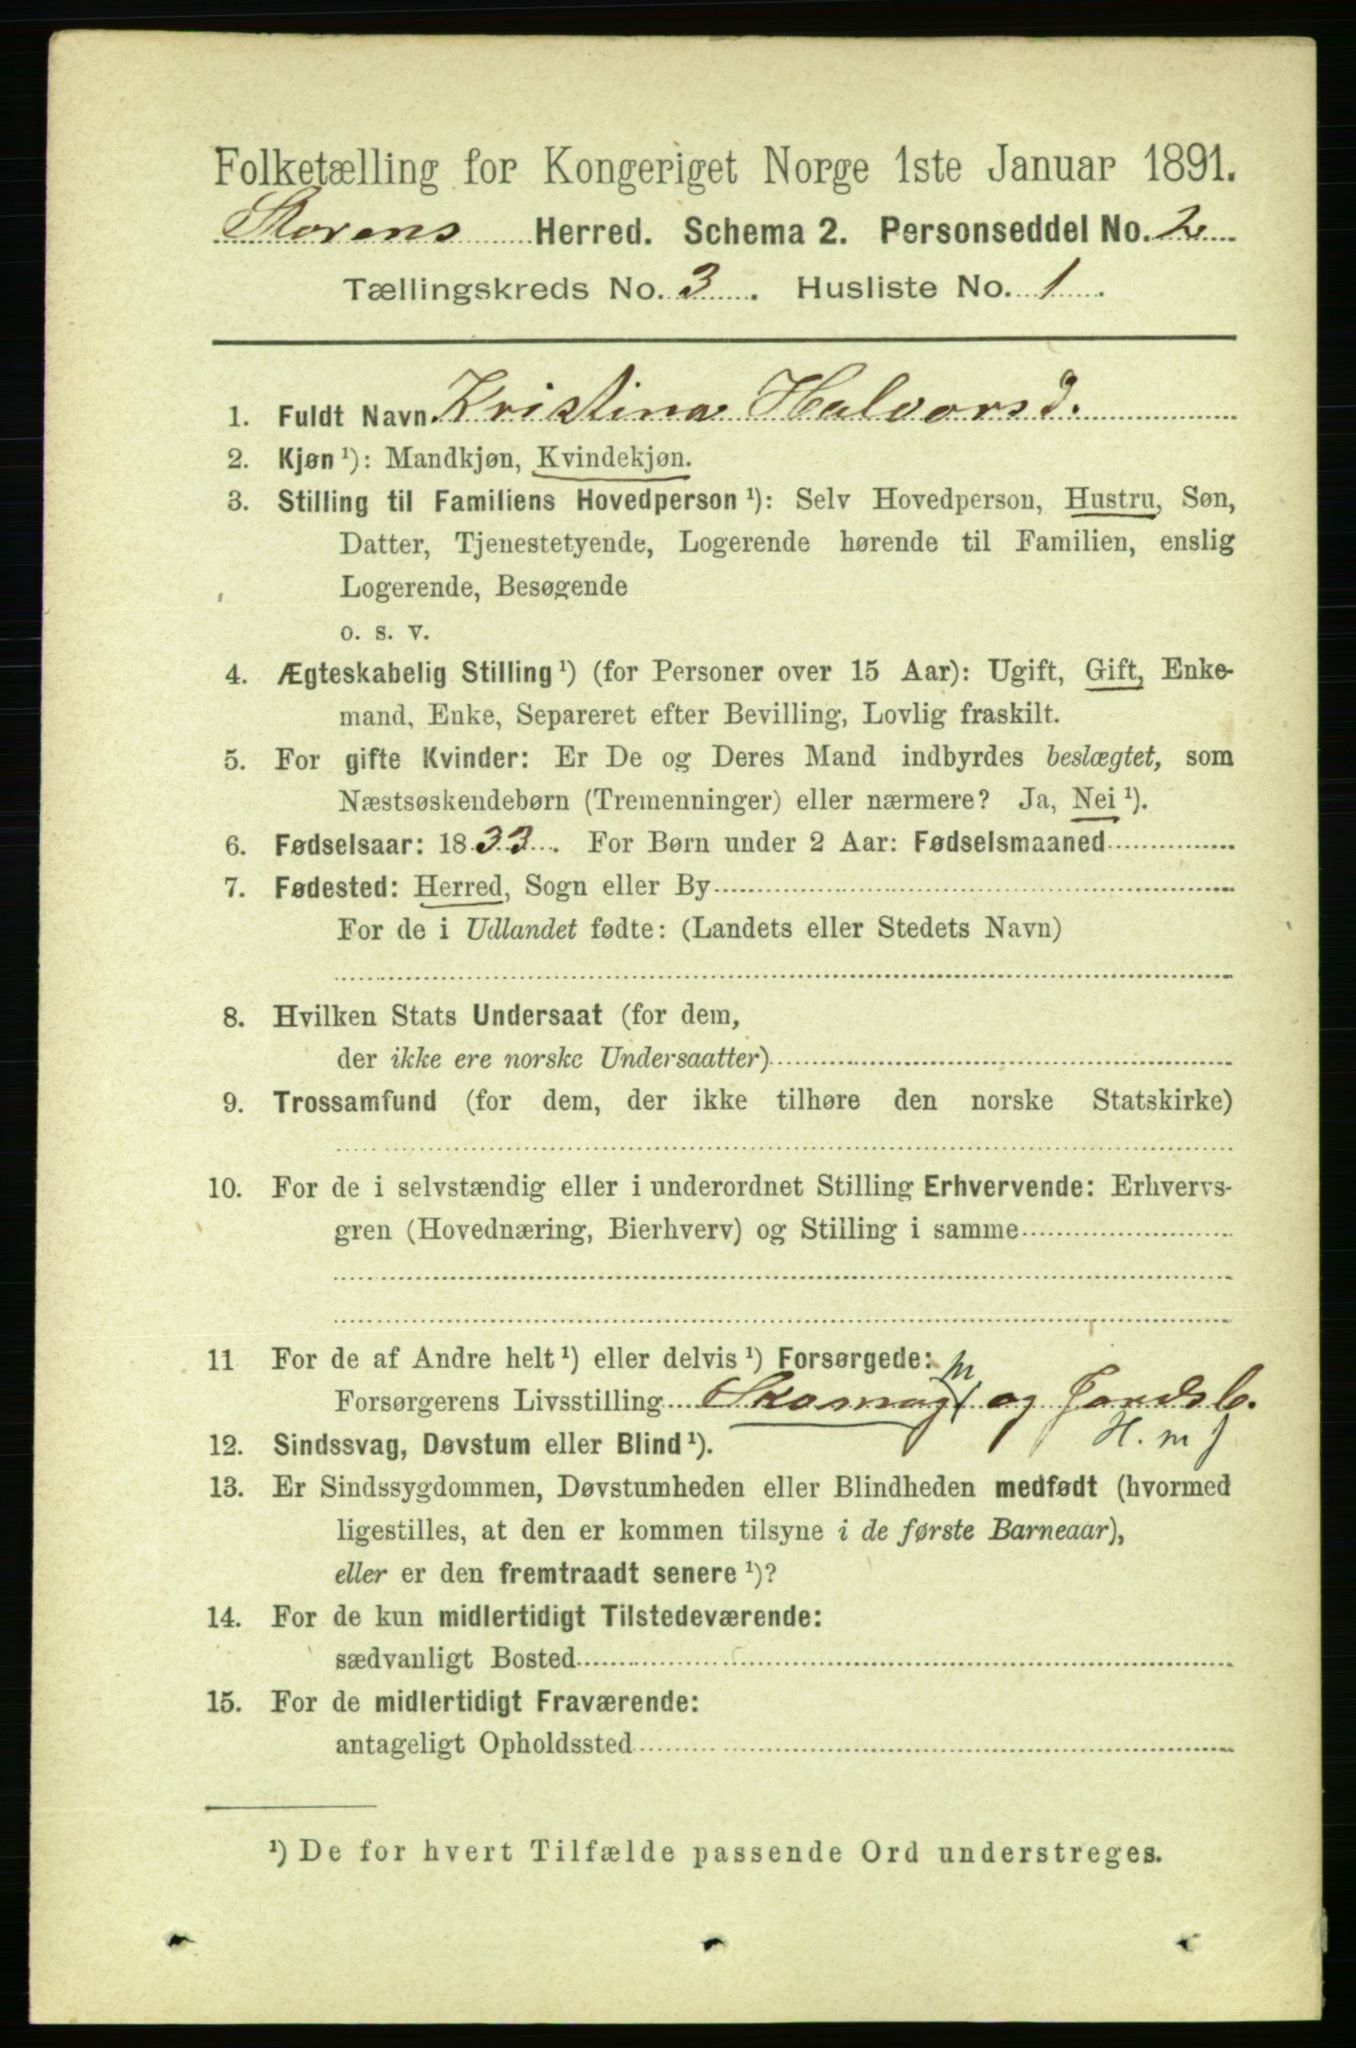 Folketælling for Kongeriget Norge 1ste Januar 1891.
Storens Herred. Schema 2. Personseddel No. 2
Tællingskreds No. 3. Husliste No. 1.
1. Fuldt Navn Kristina Halvorsd.
2. Kjøn ¹): Mandkjøn, Kvindekjøn.
3. Stilling til Familiens Hovedperson ¹): Selv Hovedperson, Hustru, Søn,
Datter, Tjenestetyende, Logerende hørende til Familien, enslig
Logerende, Besøgende
o. s. v.
4. Ægteskabelig Stilling ¹) (for Personer over 15 Aar): Ugift, Gift, Enke-
mand, Enke, Separeret efter Bevilling, Lovlig fraskilt.
5. For gifte Kvinder: Er De og Deres Mand indbyrdes beslægtet, som
Næstsøskendebørn (Tremenninger) eller nærmere? Ja, Nei ¹).
6. Fødselsaar: 1833. For Børn under 2 Aar: Fødselsmaaned
7. Fødested: Herred, Sogn eller By
For de i Udlandet fødte: (Landets eller Stedets Navn)
8. Hvilken Stats Undersaat (for dem,
der ikke ere norske Undersaatter)
9. Trossamfund (for dem, der ikke tilhøre den norske Statskirke)
10. For de i selvstændig eller i underordnet Stilling Erhvervende: Erhvervs-
gren (Hovednæring, Bierhverv) og Stilling i samme
11 For de af Andre helt ¹) eller delvis ¹) Forsørgede:
Forsørgerens Livsstilling Skomag og Jordsb.
H. m
12. Sindssvag, Døvstum eller Blind ¹).
13. Er Sindssygdommen, Døvstumheden eller Blindheden medfødt (hvormed
ligestilles, at den er kommen tilsyne i de første Barneaar),
eller er den fremtraadt senere ¹)?
14. For de kun midlertidigt Tilstedeværende:
sædvanligt Bosted
15. For de midlertidigt Fraværende:
antageligt Opholdssted
¹) De for hvert Tilfælde passende Ord understreges.